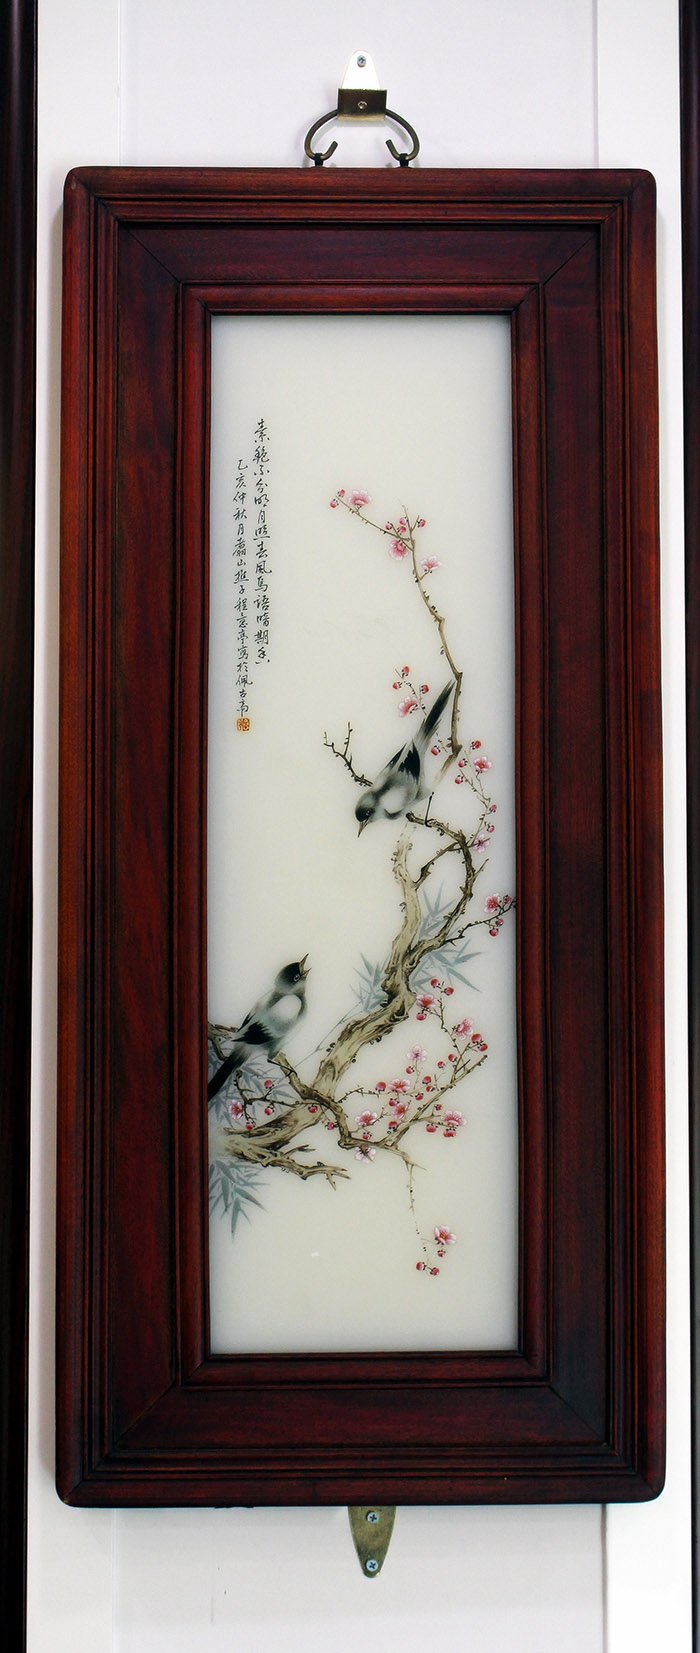 素艳不分明月照春风鸟语暗期香
乙亥仲秋月翥山樵子程意亭写於佩古斋